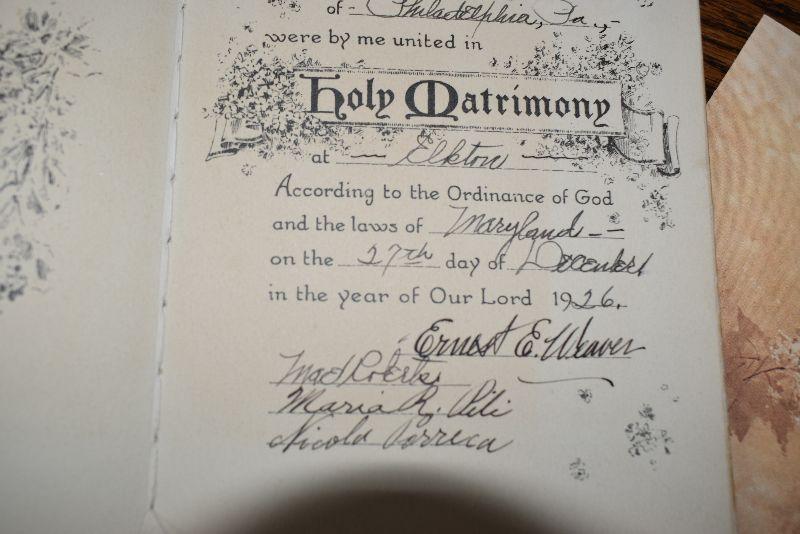 of - Philadelphia, Pa., -
were by me united in
Holy Matrimony
at Elkton
According to the Ordinance of God
and the laws of Maryland - -
on the 27th day of December
in the year of Our Lord 1926.
Ernest E. Weaver
Maria R.
Nicola